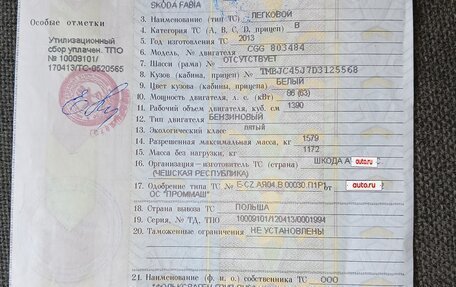 Особые отметки
Утилизационный
сбор уплачен. ТПО
№ 10009101/
170413/ТС-0520565
SKODA FABIA
3. Наименование (тип ТС) ЛЕГКОВОЙ
4. Категория ТС (А, В, С, D, прицеп) В
5. Год изготовления ТС 2013
6. Модель, № двигателя CGG 803484
7. Шасси (рама) № ОТСУТСТВУЕТ
8. Кузов (кабина, прицеп) № TMBJC45J7D3125568
9. Цвет кузова (кабины, прицепа) БЕЛЫЙ
10. Мощность двигателя, л. с. (кВт) 86 (63)
11. Рабочий объем двигателя, куб. см 1390
12. Тип двигателя БЕНЗИНОВЫЙ
13. Экологический класс пятый
14. Разрешенная максимальная масса, кг 1579
15. Масса без нагрузки, кг 1172
16. Организация-изготовитель ТС (страна) ШКОДА А auto.ru
(ЧЕШСКАЯ РЕСПУБЛИКА)
17. Одобрение типа ТС № E-CZ.АЯ04.В.00030.П1Р1 от auto.ru
ОС "ПРОММАШ"
18. Страна вывоза ТС ПОЛЬША
19. Серия, № ТД, ТПО 10009101/120413/0001994
20. Таможенные ограничения НЕ УСТАНОВЛЕНЫ
21. Наименование (ф. и. о.) собственника ТС ООО